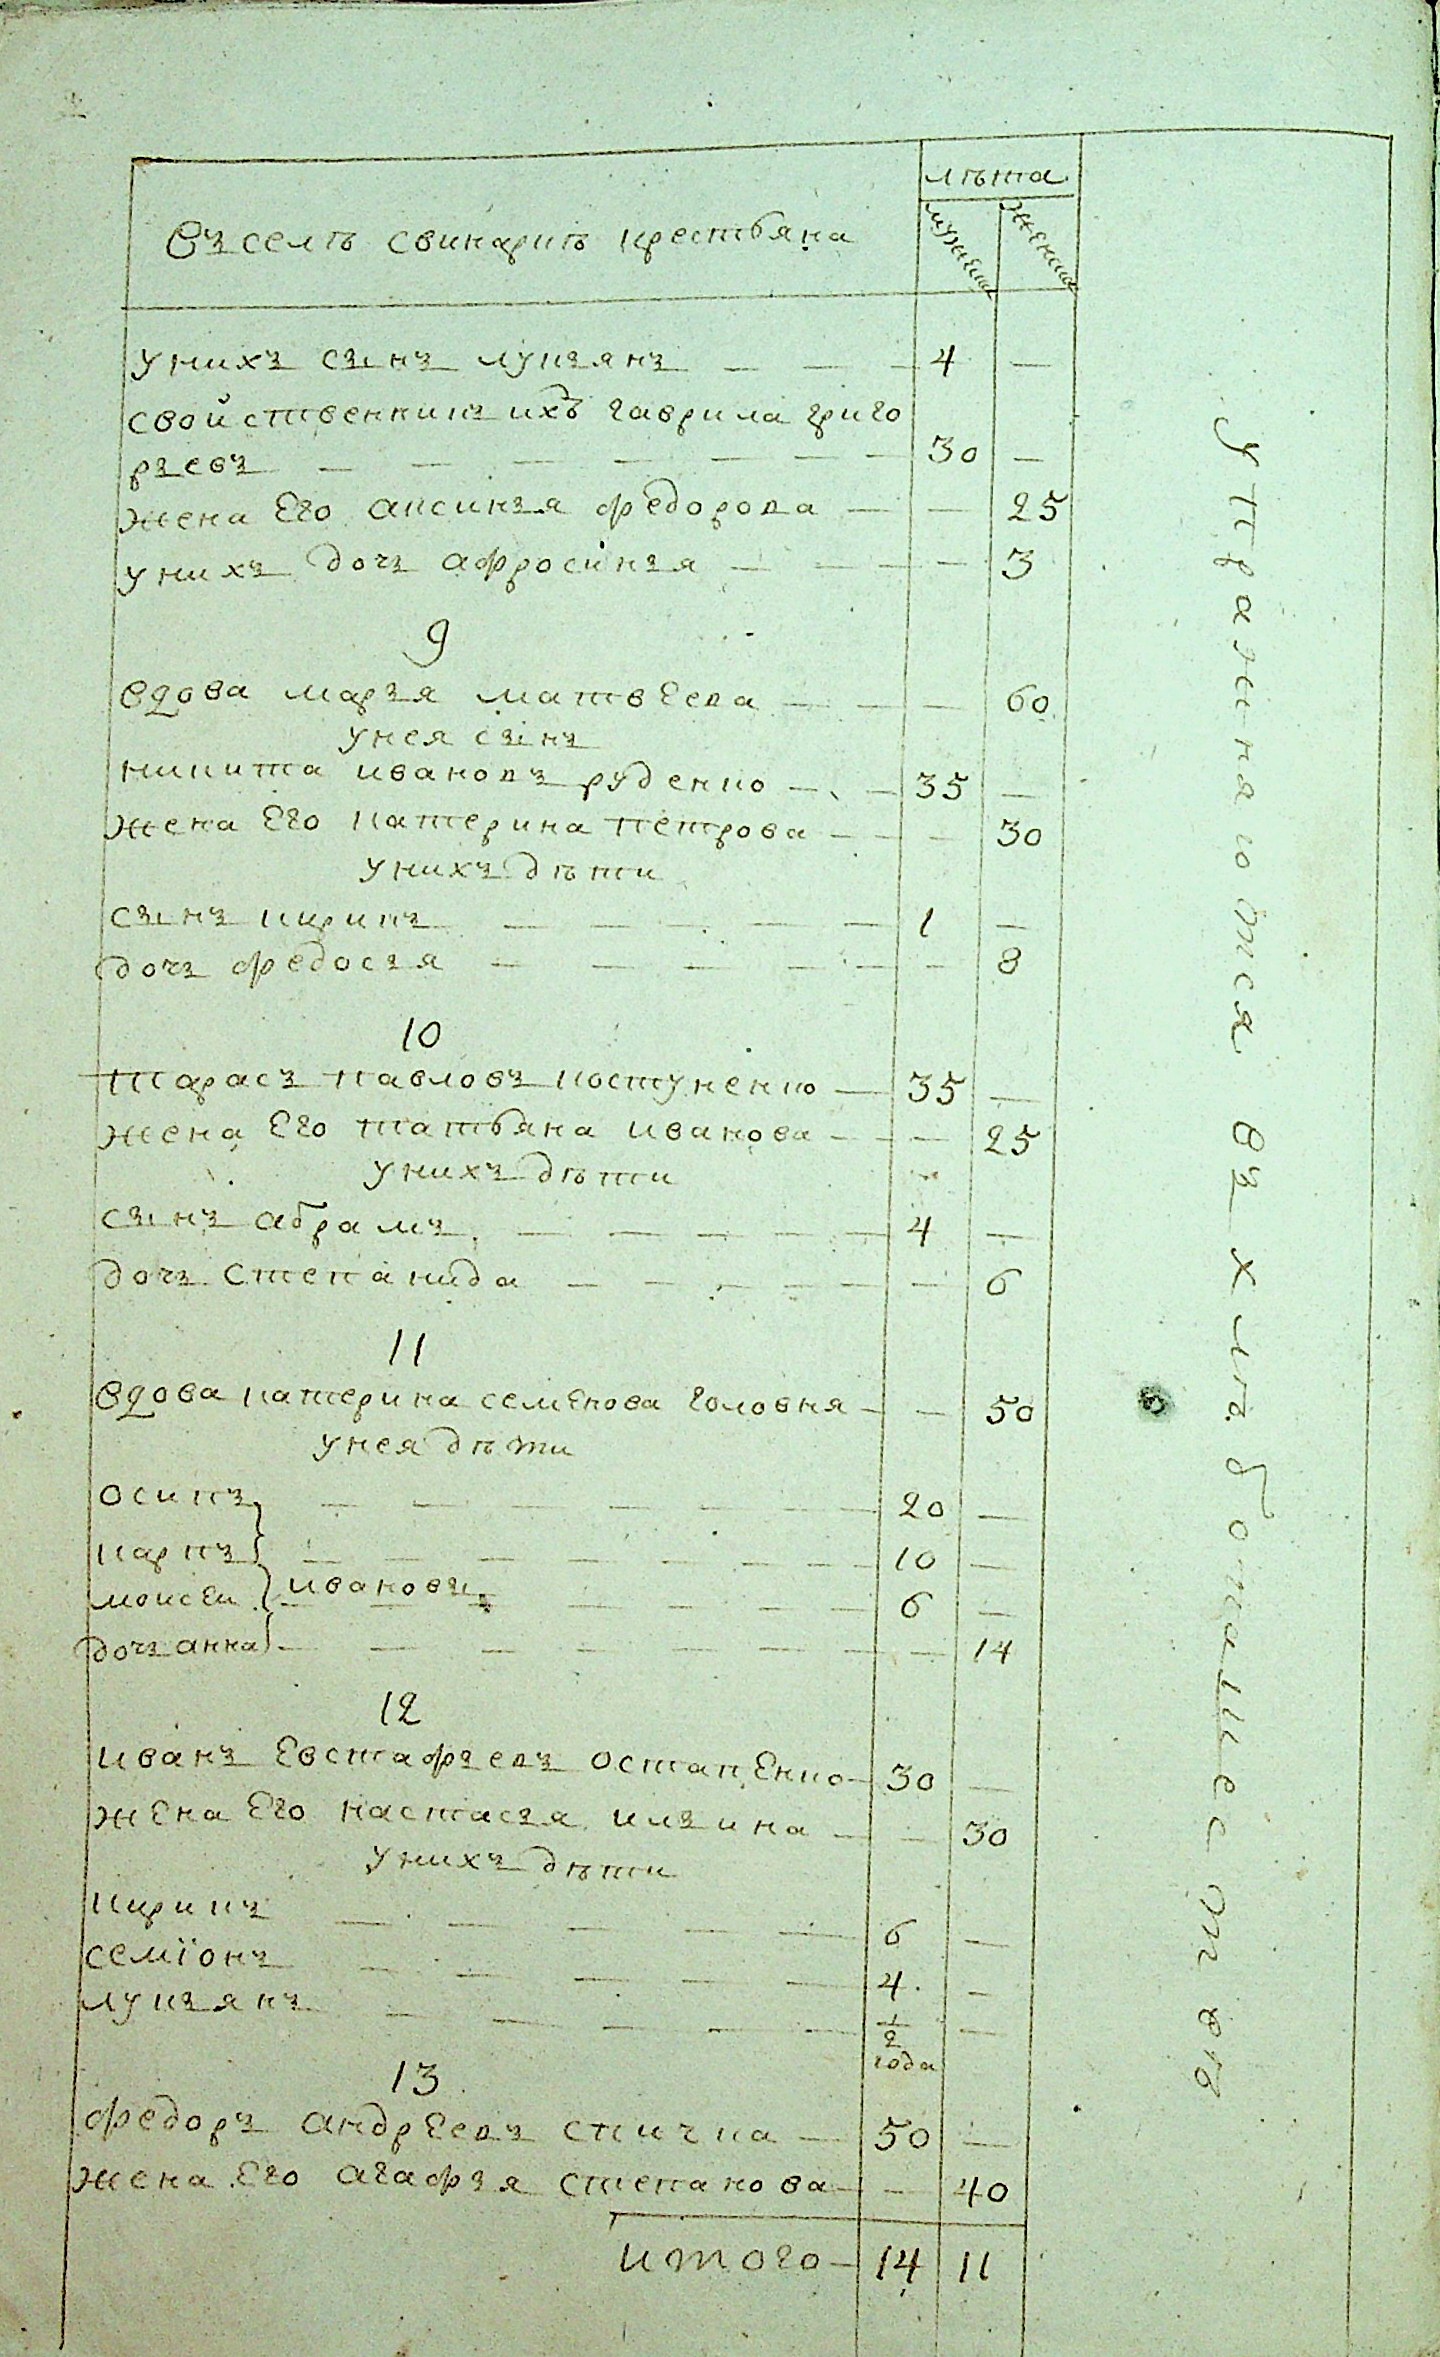 лѣта
Въ селѣ свинарнѣ крестьяна
мужеска
женска
у нихъ сынъ лукьянъ — — — 4 —
свойственникъ ихъ гаврила григо
рьевъ — — — — — — — 30 —
жена Его аксинья федорова — — 25
у нихъ дочь афросинья — — — — 3
9
вдова марья матвѣева — — — 60
у нея сынъ
никита ивановъ руденко — — 35 —
жена Его катерина петрова — — — 30
у нихъ дѣти
сынъ кирикъ — — — — — 1 —
дочь федосья — — — — — — 8
10
тарасъ павловъ костуненко — 35 —
жена Его татьяна иванова — — — 25
у нихъ дѣти
сынъ абрамъ — — — — — 4 —
дочь степанида — — — — — — 6
11
вдова катерина семенова головня — — 50
у нея дѣти
осипъ — — — — — — 20 —
карпъ — — — — — — — 10 —
моисеи ивановы — — — — 6 —
дочь анна — — — — — — — — 14
12
иванъ Евстафьевъ остапенко — 30 —
жена Его настасья ильина — — 30
у нихъ дѣти
кирикъ — — — — — 6 —
семїонъ — — — — — 4 —
лукьянъ — — — — — 1/2 —
года
13
федоръ андрѣевъ спичка — 50 —
жена Его агафья степанова — — 40
итого — 14 11
упражняются въ хлѣбопашествѣ